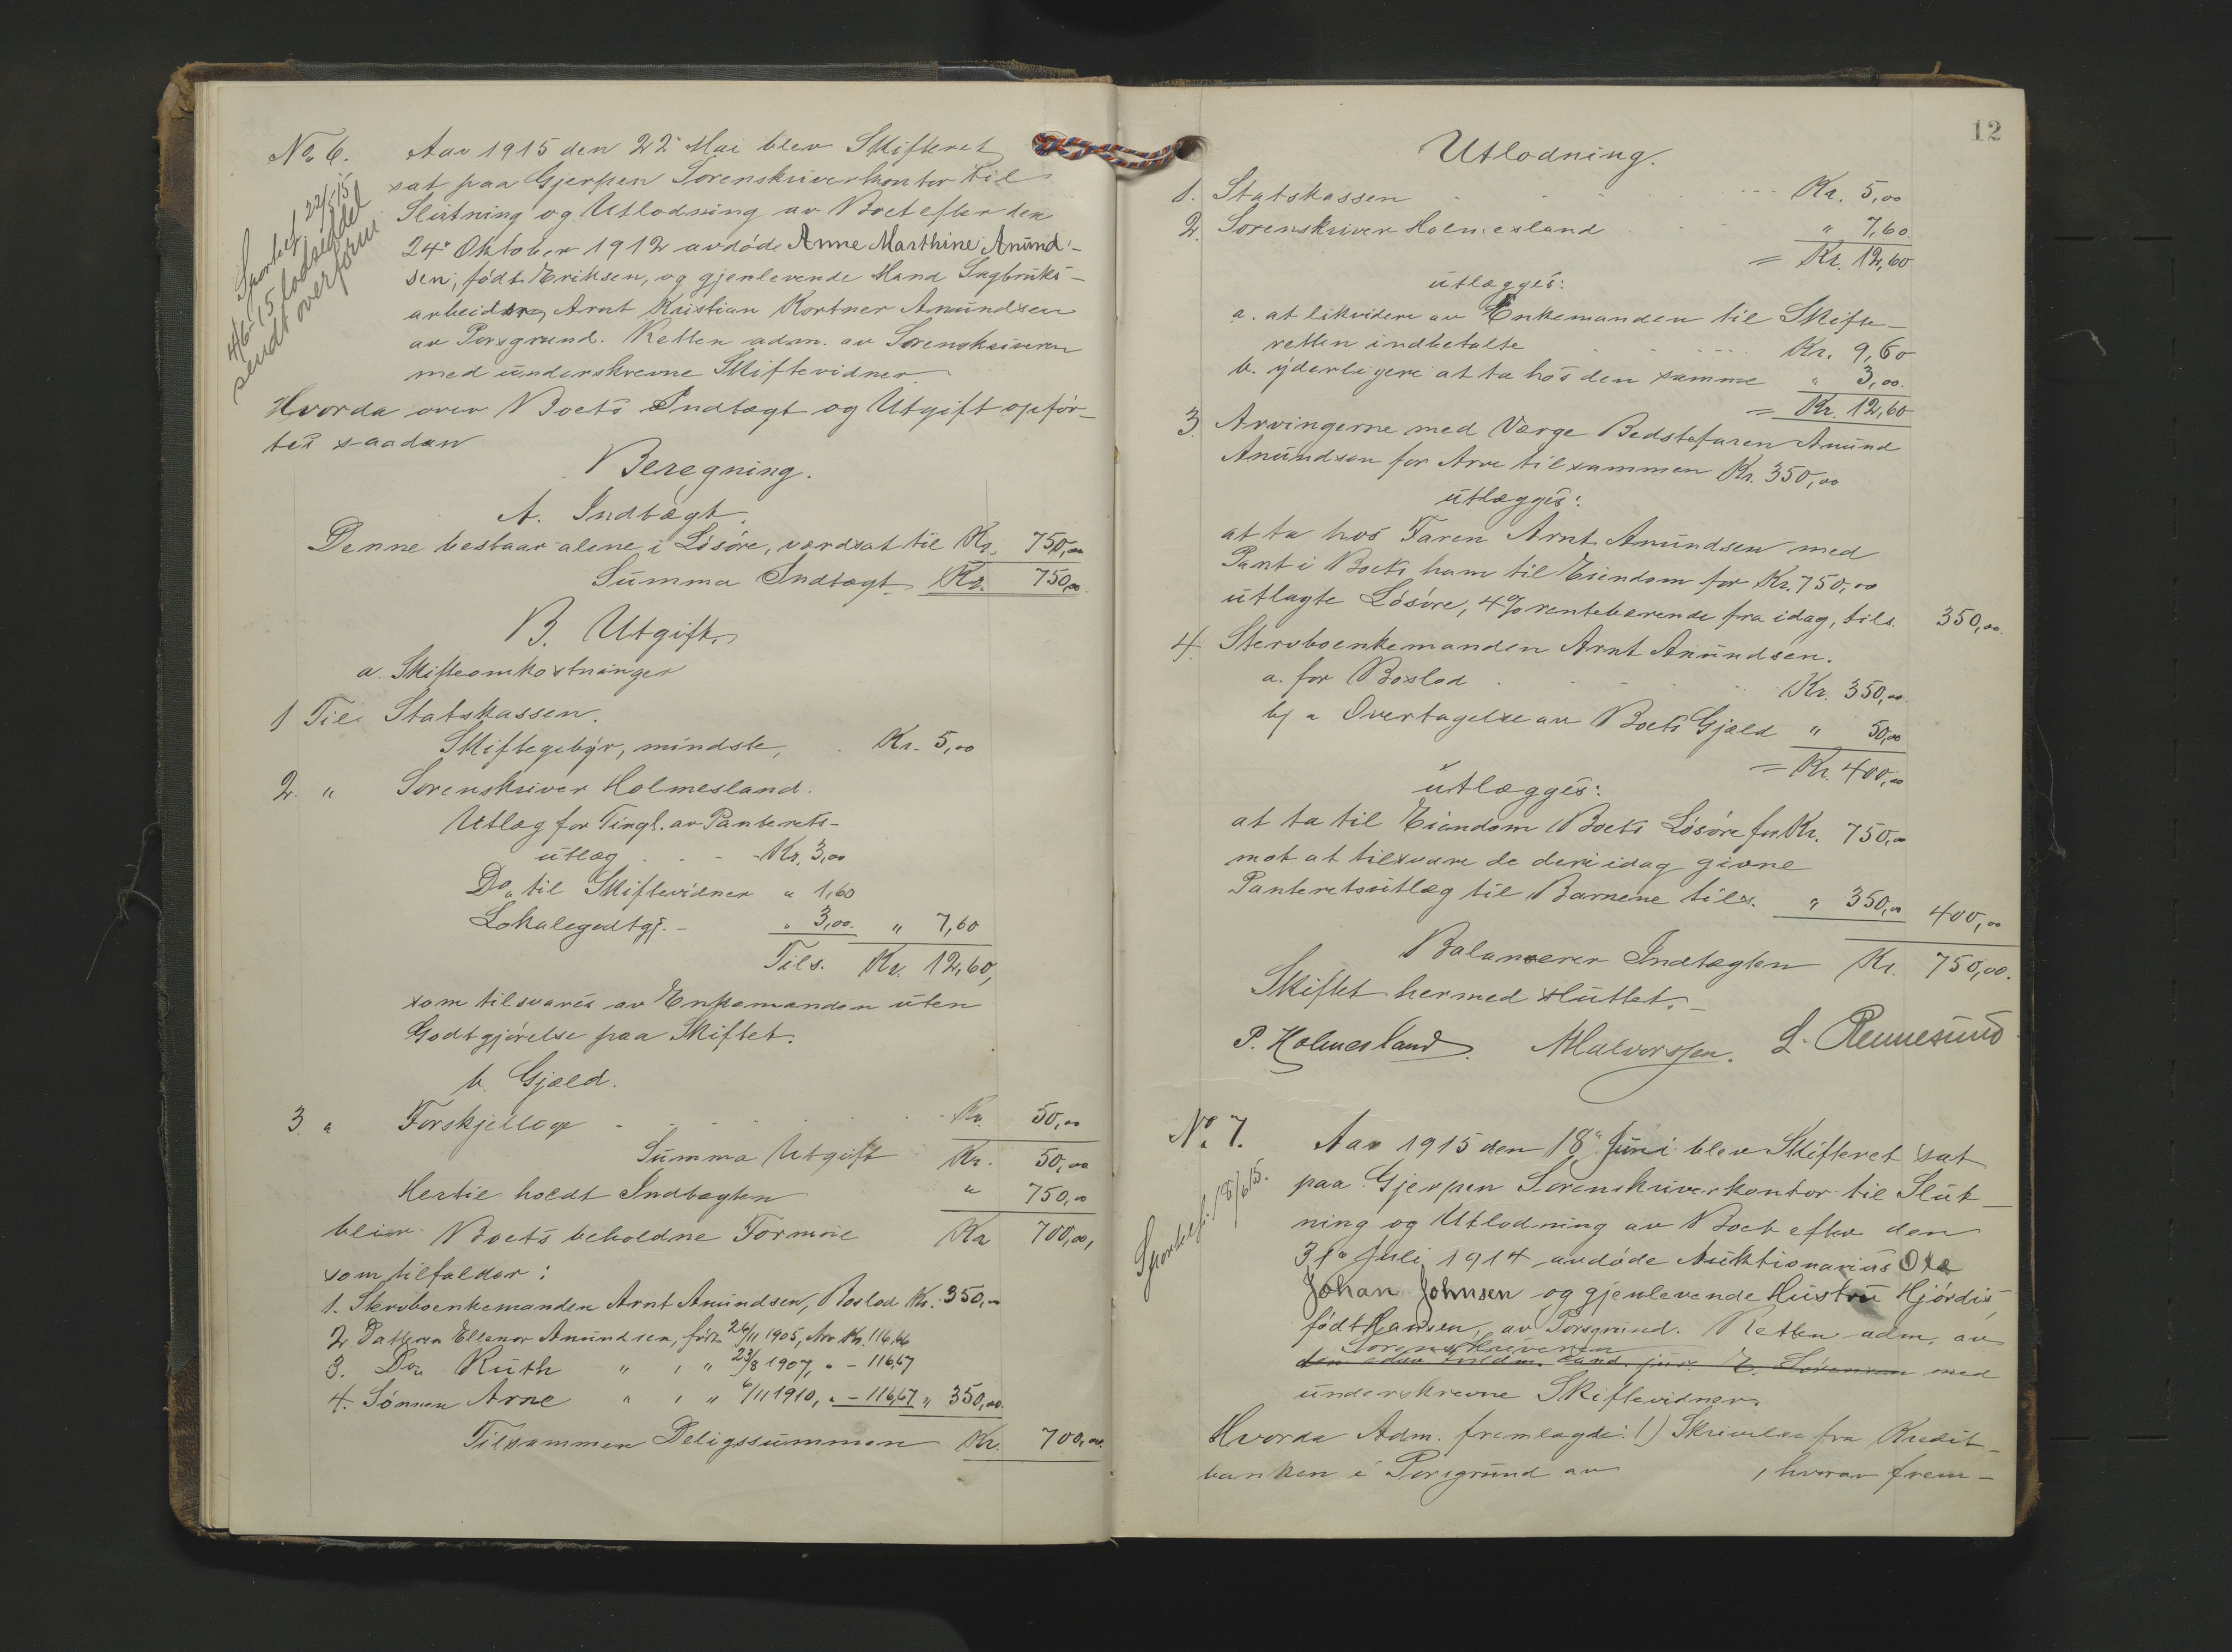 No 6. Aar 1915 den 22' Mai blev Skifteret
sat paa Gjerpen Sorenskriverkontor til
Slutning og Utlodning av Boet efter den
24' Oktober 1912 avdøde Anne Marthine Anund-
sen, født Eriksen, og gjenlevende Mand Sagbruks-
arbeider Arnt Kristian Kortner Amundsen
av Porsgrund. Retten adm. av Sorenskriveren
med underskrevne Skiftevidner.
Sportel f. 22/5 15
4/6 15 lodseddel
sendt overform
Hvorda over Boets Indtægt og Utgift opfør-
tes saadan
Beregning.
A. Indtægt.
Denne bestaar alene i Løsøre, værdsat til Kr. 750,00
Summa Indtægt Kr. 750,00
B. Utgift.
a. Skifteomkostninger
1 Til Statskassen.
Skiftegebyr, mindste, Kr. 5,00
2. " Sorenskriver Holmesland.
Utlæg for Tingl. av Panterets-
utlæg . . - Kr. 3,00
Do. til Skiftevidner " 1,60
Lokalegodtgj. - " 3,00. " 7,60
Tils. Kr. 12,60,
som tilsvares av Enkemanden uten
Godtgjørelse paa Skiftet.
b. Gjæld.
3. " Forskjellig Kr. 50,00
Summa Utgift Kr. 50,00
Hertil holdt Indtægten " 750,00
bliver Boets beholdne Formue Kr 700,00,
som tilfalder:
1. Stervboenkemanden Arnt Anundsen, Boslod Kr. 350,00
2. Datteren Ellenor Anundsen, født 26/11 1905, Arv Kr. 116,66
3. Do. Ruth " , " 23/8 1907, " - 116,67
4. Sønnen Arne " , " 6/11 1910, " - 116,67 " 350,00.
Tilsammen Deligssummen Kr. 700,00.
12
Utlodning.
1. Statskassen Kr. 5,00
2. Sorenskriver Holmesland " 7,60.
= Kr. 12,60
utlægges:
a. at likvidere av Enkemanden til Skifte-
retten indbetalte Kr. 9,60
b. yderligere at ta hos den samme " 3,00.
= Kr. 12,60
3. Arvingerne med Værge Bedstefaren Anund
Anundsen for Arv tilsammen Kr. 350,00
utlægges:
at ta hos Faren Arnt Anundsen med
Pant i Boets ham til Eiendom for Kr. 750,00
utlagte Løsøre, 4% rentebærende fra idag, tils. 350,00.
4. Stervboenkemanden Arnt Anundsen.
a. for Boslod Kr. 350,00.
b) " Overtagelse av Boets Gjæld " 50,00
= Kr. 400,00
utlægges:
at ta til Eiendom Boets Løsøre for Kr. 750,00
mot at tilsvare de deri idag givne
Panteretsutlæg til Barnene tils. " 350,00 400,00
Balanserer Indtægten Kr. 750,00.
Skiftet hermed sluttet. -
P. Holmesland. AHalvorssen. L. Rennesund
No 7. Aar 1915 den 18' Juni blev Skifteret sat
paa Gjerpen Sorenskriverkontor til Slut-
ning og Utlodning av Boet efter den
31' Juli 1914 avdøde Auktionarius Ole
Johan Johnsen og gjenlevende Hustru Hjørdis,
født Hansen, av Porsgrund. Retten adm. av
Sorenskriveren
den edsv. fuldm. Cand. jur. E. Sørensen med
underskrevne Skiftevidner.
Sportel f. 18/6 15.
Hvorda Adm. fremlagde: 1) Skrivelse fra Kredit-
banken i Porsgrund av , hvorav frem-